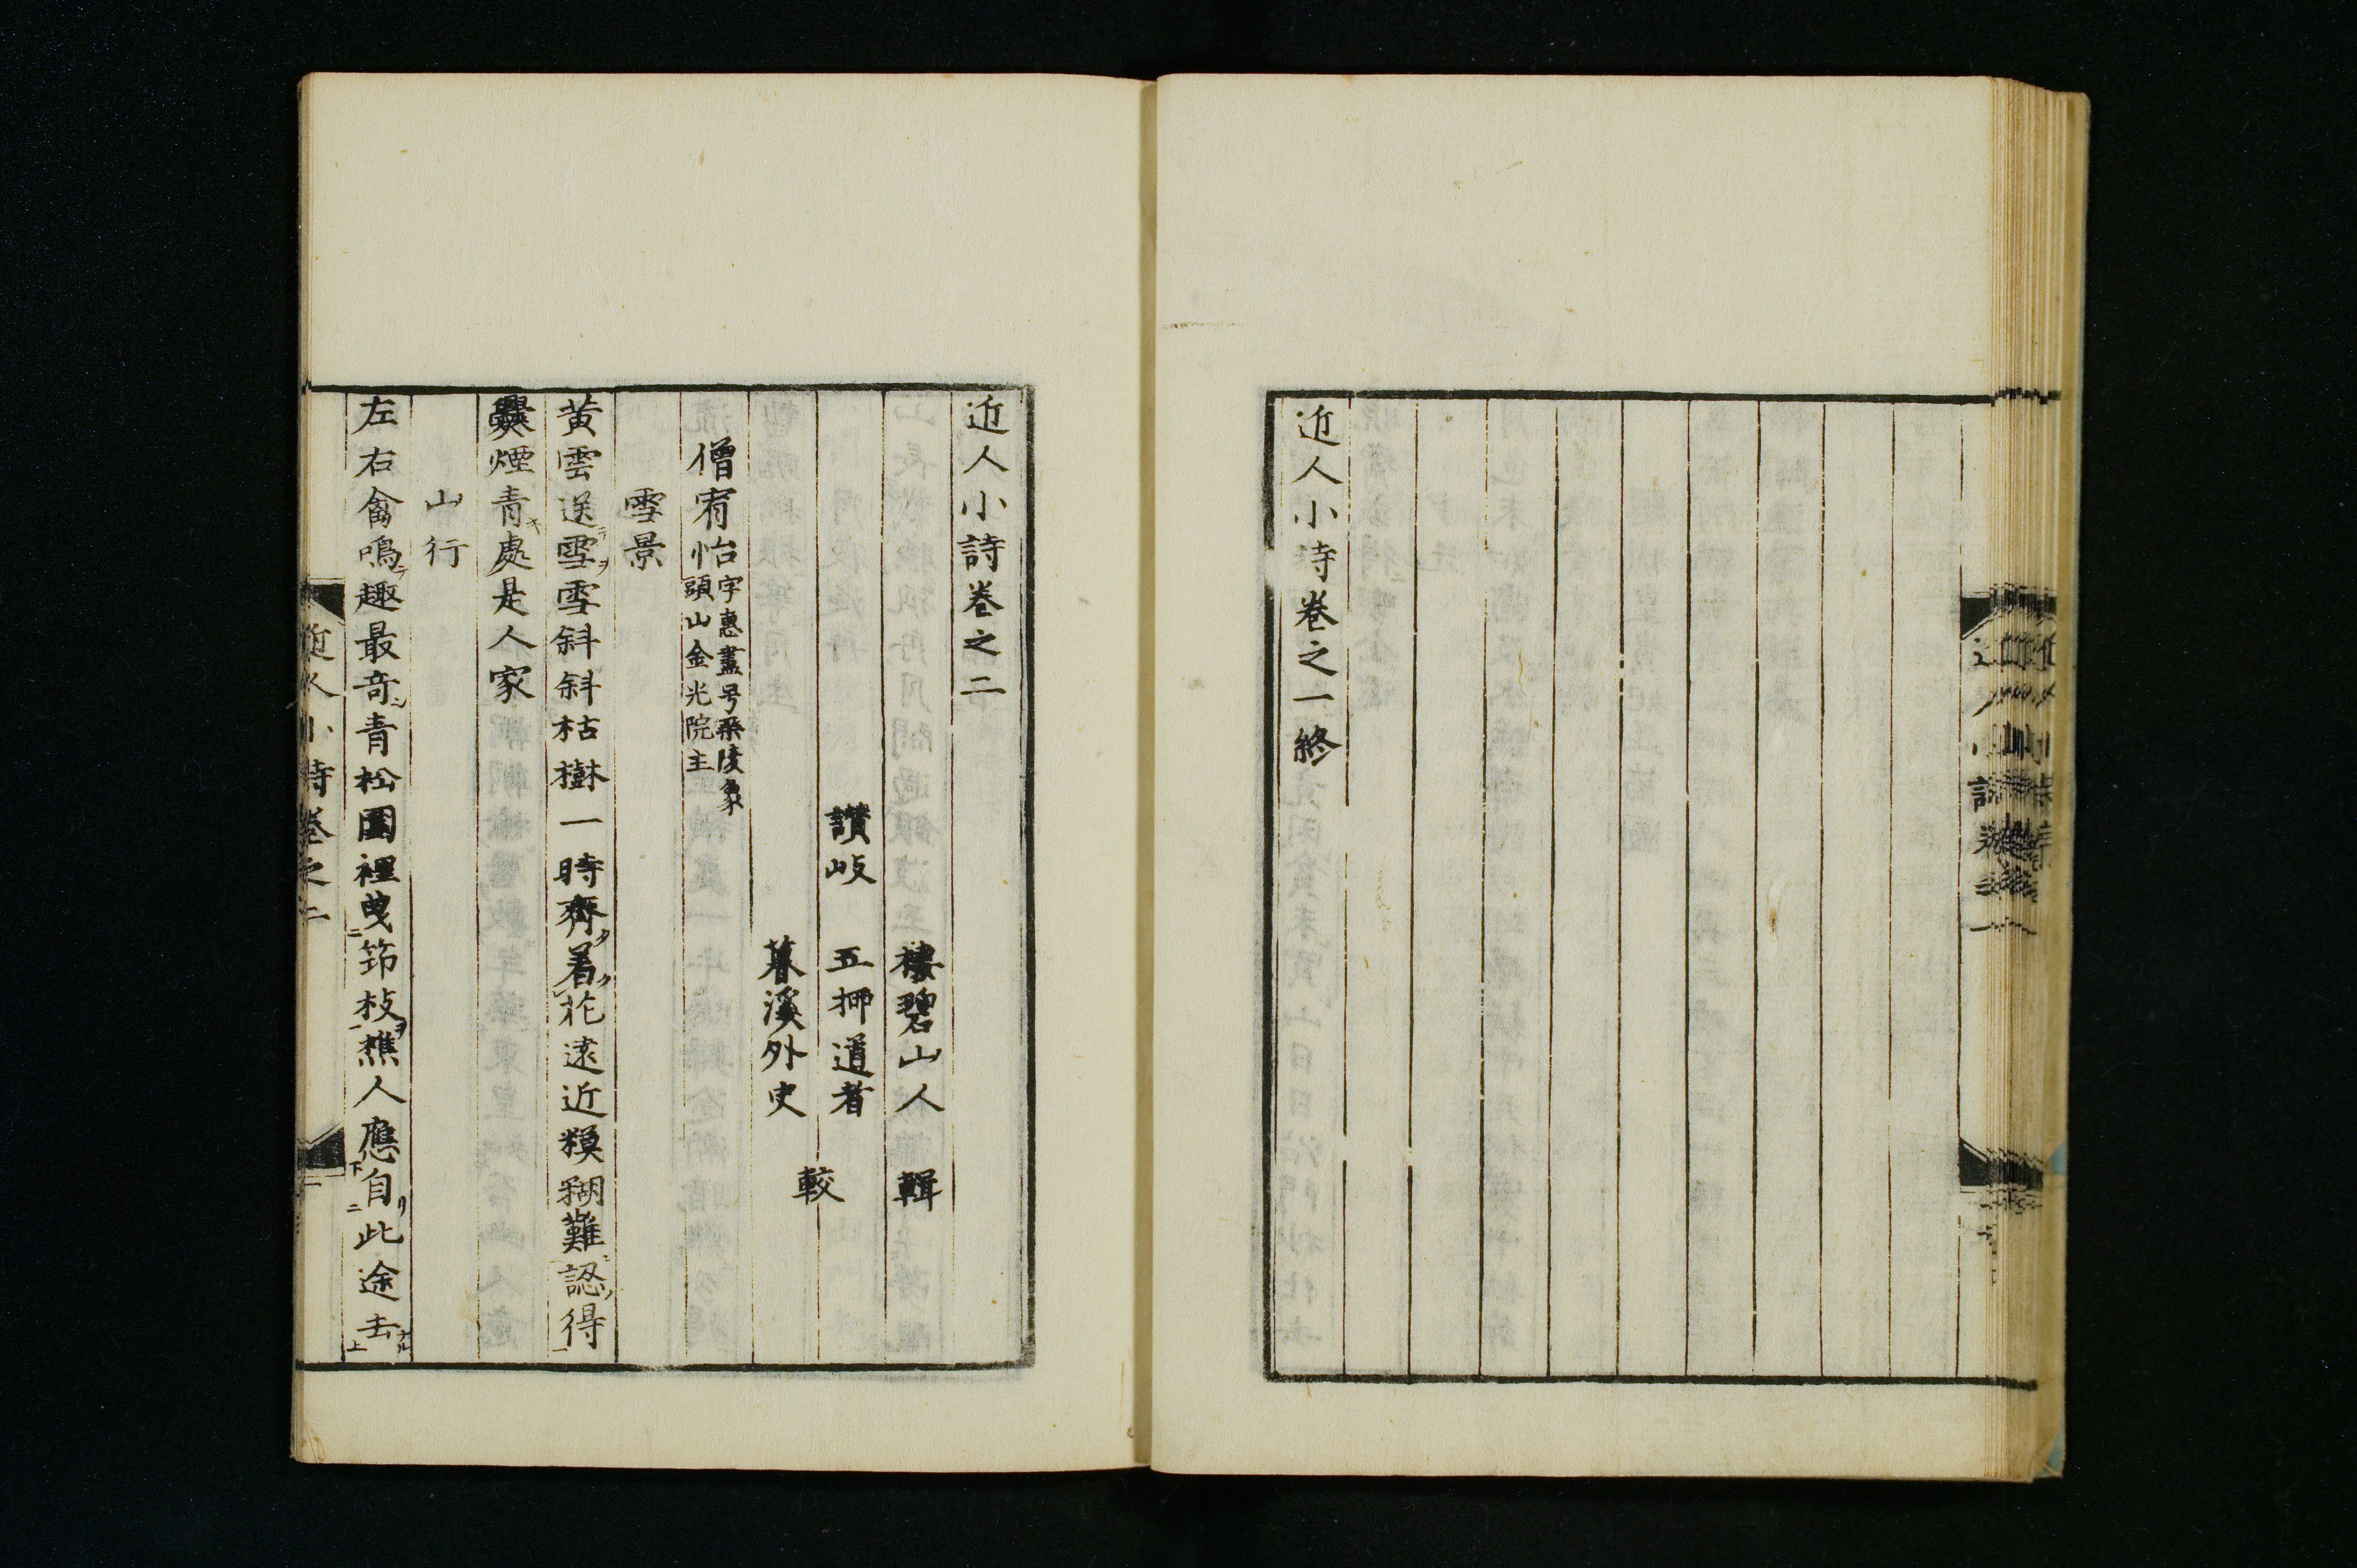 近人小詩卷之一終
近人小詩卷之二
棲碧山人 輯
讃岐 五柳道者
暮溪外史 較
僧宥怡 字惠畫号乘陵象
頭山金光院主
雪景
黄雲送雪雪斜斜枯樹一時齊着花遠近糢糊難認得
爨煙青處是人家
山行
左右禽鳴趣最奇青松圍裡曳筇枝樵人應自此途去
近人小詩卷之二